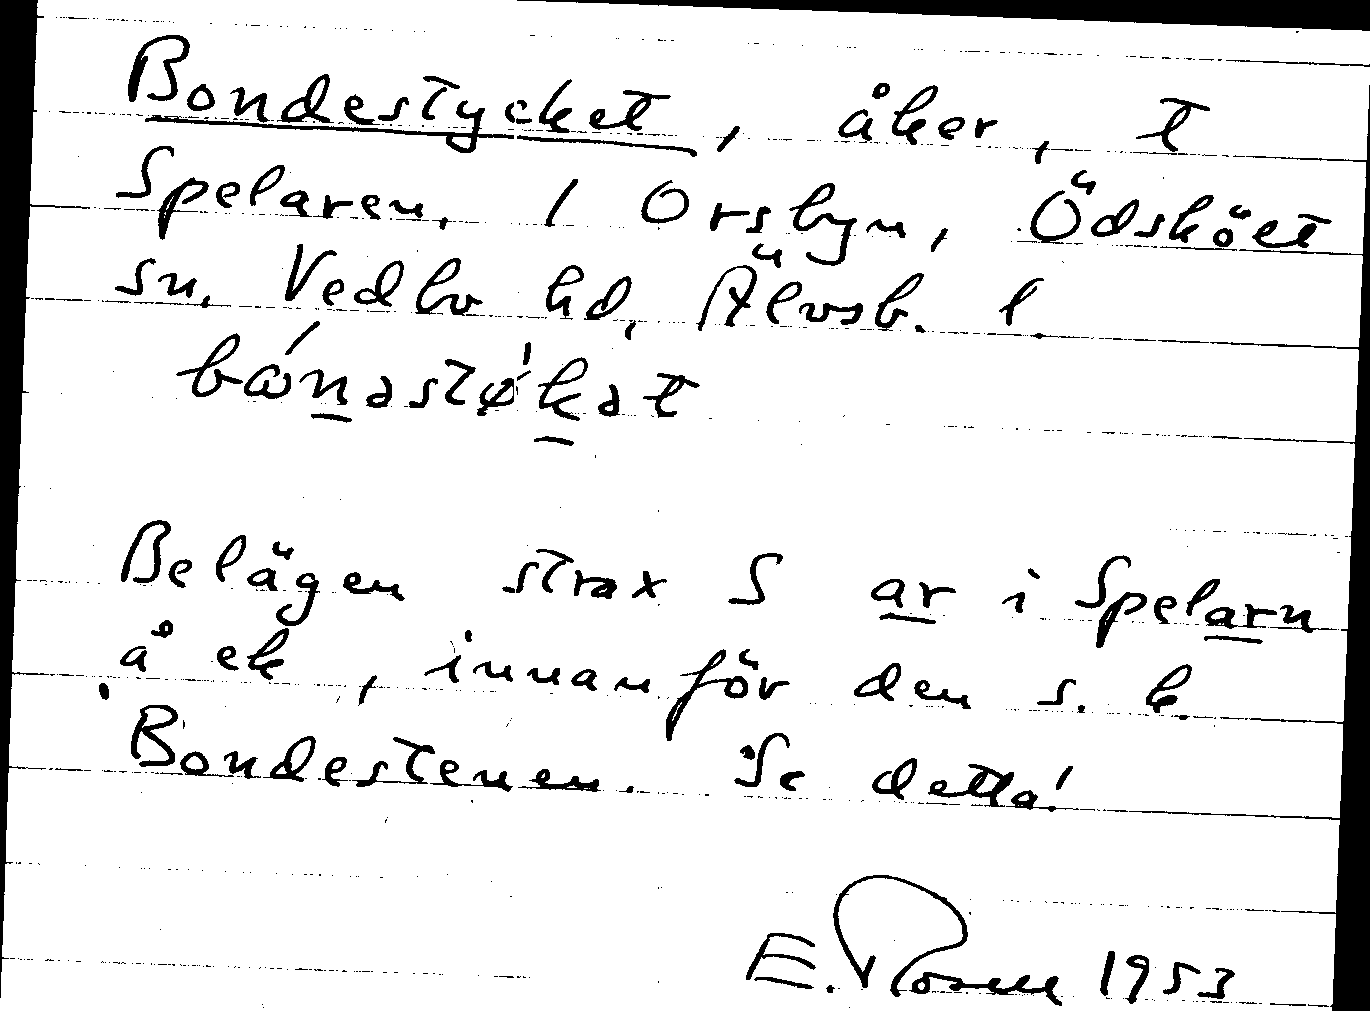 Bondestycket, åker, t
Spelaren, 1 Orsbyn, Ödsköet
sn, Vedbo hd, Älvsb. l.
bónastø̀kat
Belägen strax S ar i Spelarn
å ek, innanför den s. k.
Bondestenen. Se detta!
E. Rosell 1953